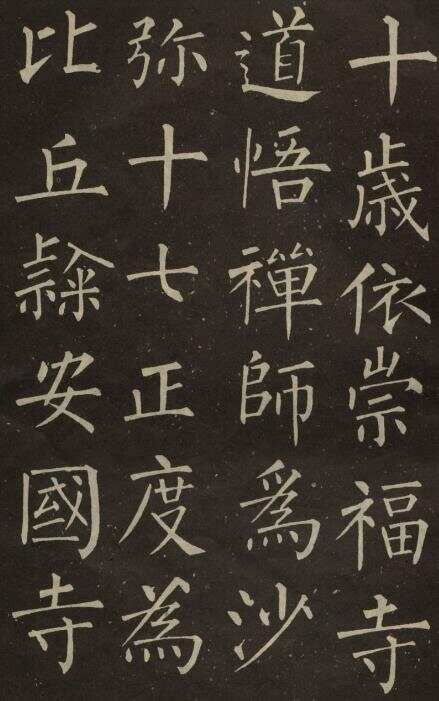 十歳依崇福寺
道悟禪師爲沙
弥十七正度為
比丘隸安國寺